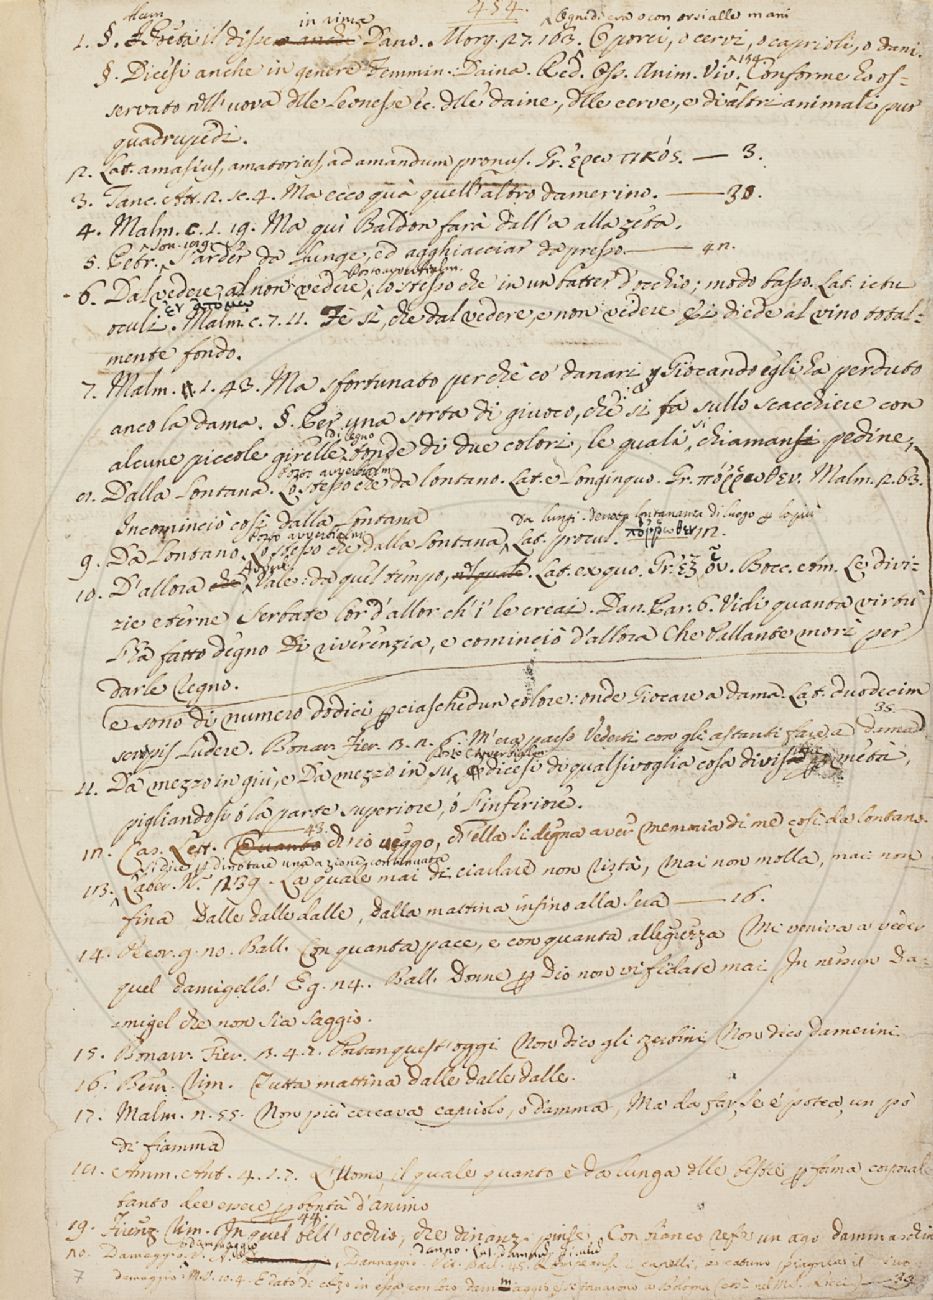 454.
Alcun in rima o cignali ch'era o con orsi alle mani
1. §. Poeta il disse Dano. Morg. 27. 163. O porci, o cervi, o caprioli, o dani.
§. Dicesi anche in genere Femmin. Daina. Red. Oss. Anim. Viv. 134. Conforme ho os-
servato nell'uova delle Leonesse ec. delle daine, delle cerve, e di altri animali pur
quadrupedi.
2. Lat. amasius, amatorius, ad amandum pronus. Gr. ἐρωτικός. — 3.
3. Tanc. Att. 2. sc. 4. Ma ecco quà quell'altro damerino. — 30.
4. Malm. C. 1. 19. Ma quì Baldon farà dall'a alla zeta.
5. Petr. Son. 189. S'arder da lunge, ed agghiacciar da presso. — 42.
6. Dal vedere, al non vedere, Posto avverbialm. lo stesso che in un batter d'occhio; modo basso. Lat. ictu
oculi. Malm. C. 7. 11. Fè sì, che dal vedere, e non vedere Ei diede al vino total-
mente fondo.
7. Malm. 1. 43. Ma sfortunato perchè co' danari Giocando egli ha perduto
ancola dama. §. Per una sorta di giuoco, che si fa sullo scacchiere con
alcune piccole girelle di legno tonde di due colori, le quali si chiaman pedine;
8. Dalla Lontana. Posto avverbialm. Lo stesso che da lontano. Lat. e Longinquo. Gr. πόῤῥωθεν. Malm. 2. 63.
Incominciò così dalla Lontana
9. Da Lontano. Posto avverbialm. Lo stesso che dalla Lontana, Da lungi. Denota lontananza di luogo per lo più Lat. procul. πόῤῥωθεν 12.
10. D'allora Vale: da quel tempo, . Lat. ex quo. Gr. ἐξ οὗ. Bocc. Com. Le divi-
zie eterne Serbate lor d'allor ch'i' le creai. Dan. Par. 6. Vidi quanta virtù
L'ha fatto degno Di riverenzia, e cominciò d'allora Che Pallante morì per
darle regno.
e sono di numero dodici per ciaschedun colore: onde Giocare a dama. Lat. duodecim
scrupis Ludere. Bonar. Fier. 3. 2. 6. M'era parso Vederti con gli astanti fare a dama 35.
11. Da mezzo in giù, e Da mezzo in su, Posto avverbialm. dicesi di qualsivoglia cosa divisa metà,
pigliandosi ò la parte superiore, ò l'inferiore.
12. Cas. Lett. 43. di ciò veggo, ch'ella si degna aver memoria di me così da lontano.
Si dice per dinotare una azione continuata
13. N. 1239. La quale mai di ciarlare non ristà, Mai non molla, mai non
fina Dalle dalle dalle, dalla mattina infino alla sera — 16.
14. g. 20. Ball. Con quanta pace, e con quanta allegrezza Me veniva a veder
quel damigello! E g. 24. Ball. Donne per Dio non vi fidate mai In nessun Da-
migel che non sia saggio.
15. Bonarr. Fier. 3. 4. 2. quest'oggi Non dico gli zerbini, Non dico damerini
16. Bern. Rim. Tutta mattina dalle dalle dalle.
17. Malm. 2. 55. Non più cercava capriolo, o damma, Ma da far, s'e' potea, un po'
di fiamma
18. Amm. Ant. 4. 1. 7. L'Uomo, il quale quanto è da lunga delle bestie per forma corporale
tanto dee essere per bontà d'animo
19. Rim. 44. In quel dell'occhio, che dinanzi Con bianco refe un ago
20. Dammaggio o dannaggio danno: Lat. damnum
dannaggio: — 39
7